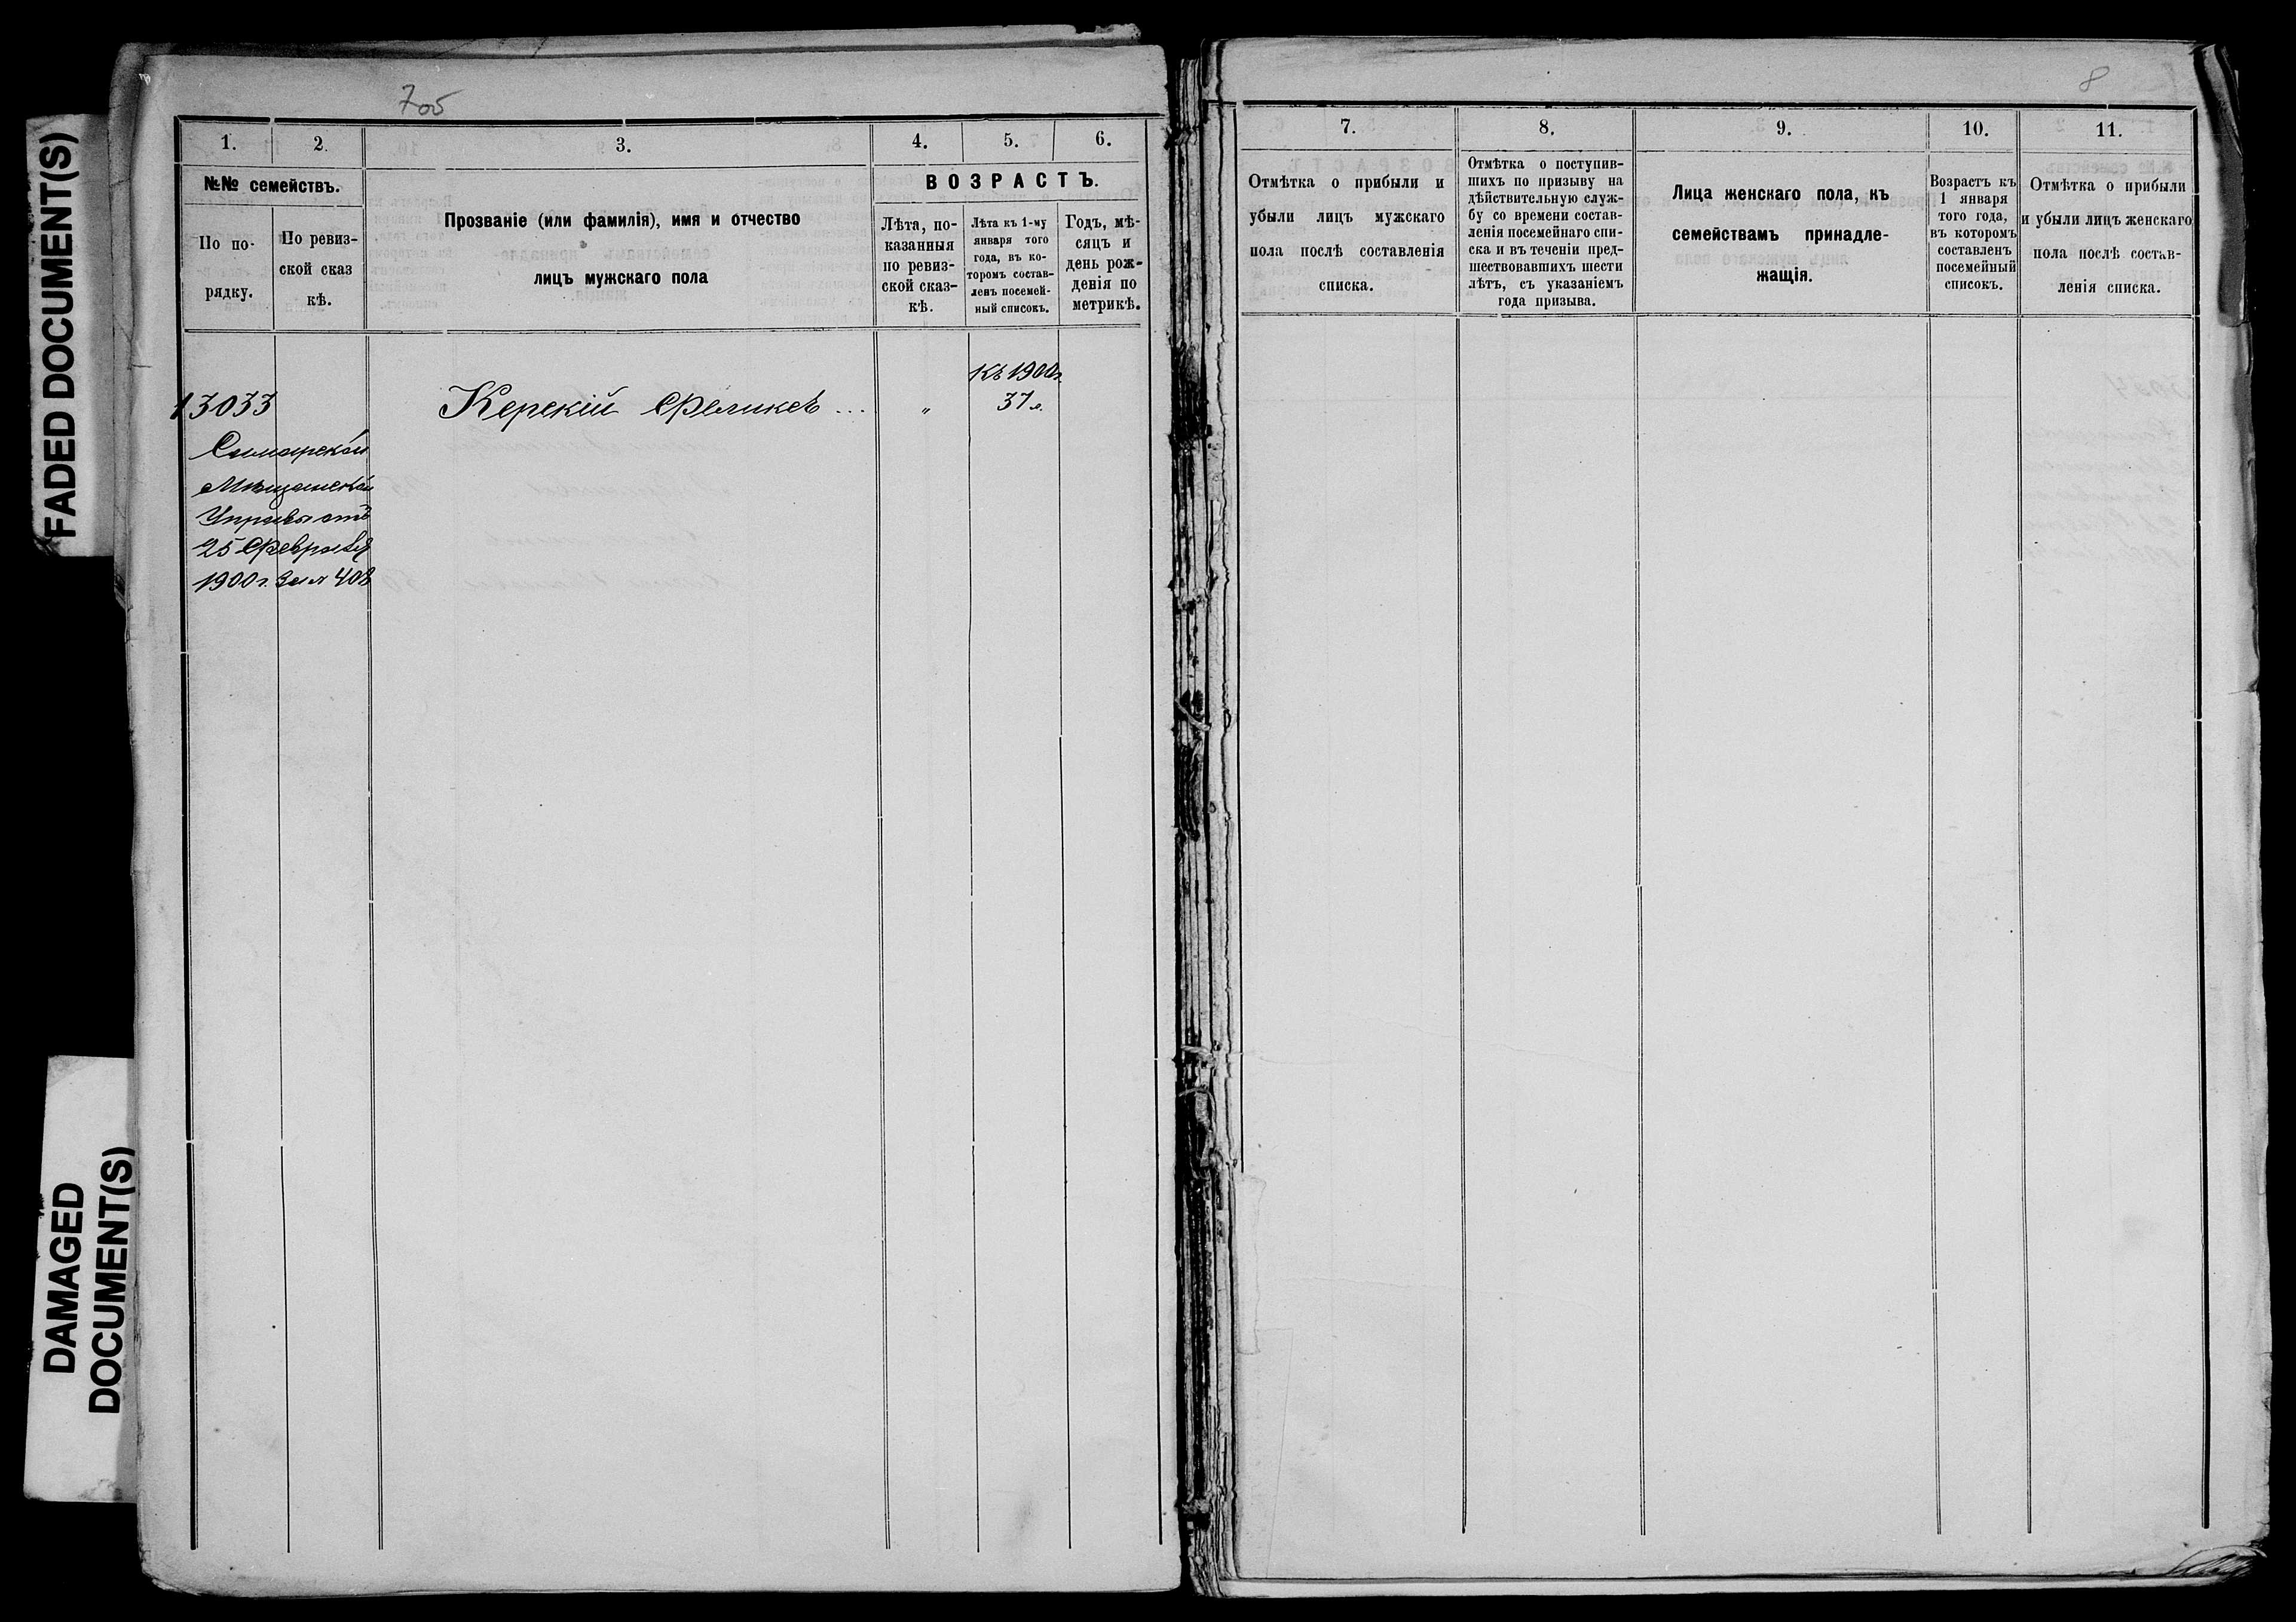 FADED DOCUMENT(S)
DAMAGED
DOCUMENT(S)
705
1.
2.
3.
4.
5.
6.
№№ семействъ.
По по-
рядку.
По ревиз-
ской сказ
кѣ.
Прозваніе (или фамилія), имя и отчество
лицъ мужскаго пола
ВОЗРАСТЪ.
Лѣта, по-
казанныя
по ревиз-
ской сказ-
кѣ.
Лѣта къ 1-му
января того
года, въ ко-
торомъ состав-
ленъ посемей-
ный списокъ.
Годъ, мѣ-
сяцъ и
день рож-
денія по
метрикѣ.
Къ 1900 г.
13033
Керскій Феликсъ ...
„
37 л.
Самарской
Мѣщанской
Управы отъ
25 Февраля
1900 г. за № 408
8
7.
8.
9.
10.
11.
Отмѣтка о прибыли и
убыли лицъ мужскаго
пола послѣ составленія
списка.
Отмѣтка о поступив-
шихъ по призыву на
дѣйствительную служ-
бу со времени состав-
ленія посемейнаго спи-
ска и въ теченіи пред-
шествовавшихъ шести
лѣтъ, съ указаніемъ
года призыва.
Лица женскаго пола, къ
семействамъ принадле-
жащія.
Возрастъ къ
1 января
того года,
въ которомъ
составленъ
посемейный
списокъ.
Отмѣтка о прибыли
и убыли лицъ женскаго
пола послѣ состав-
ленія списка.